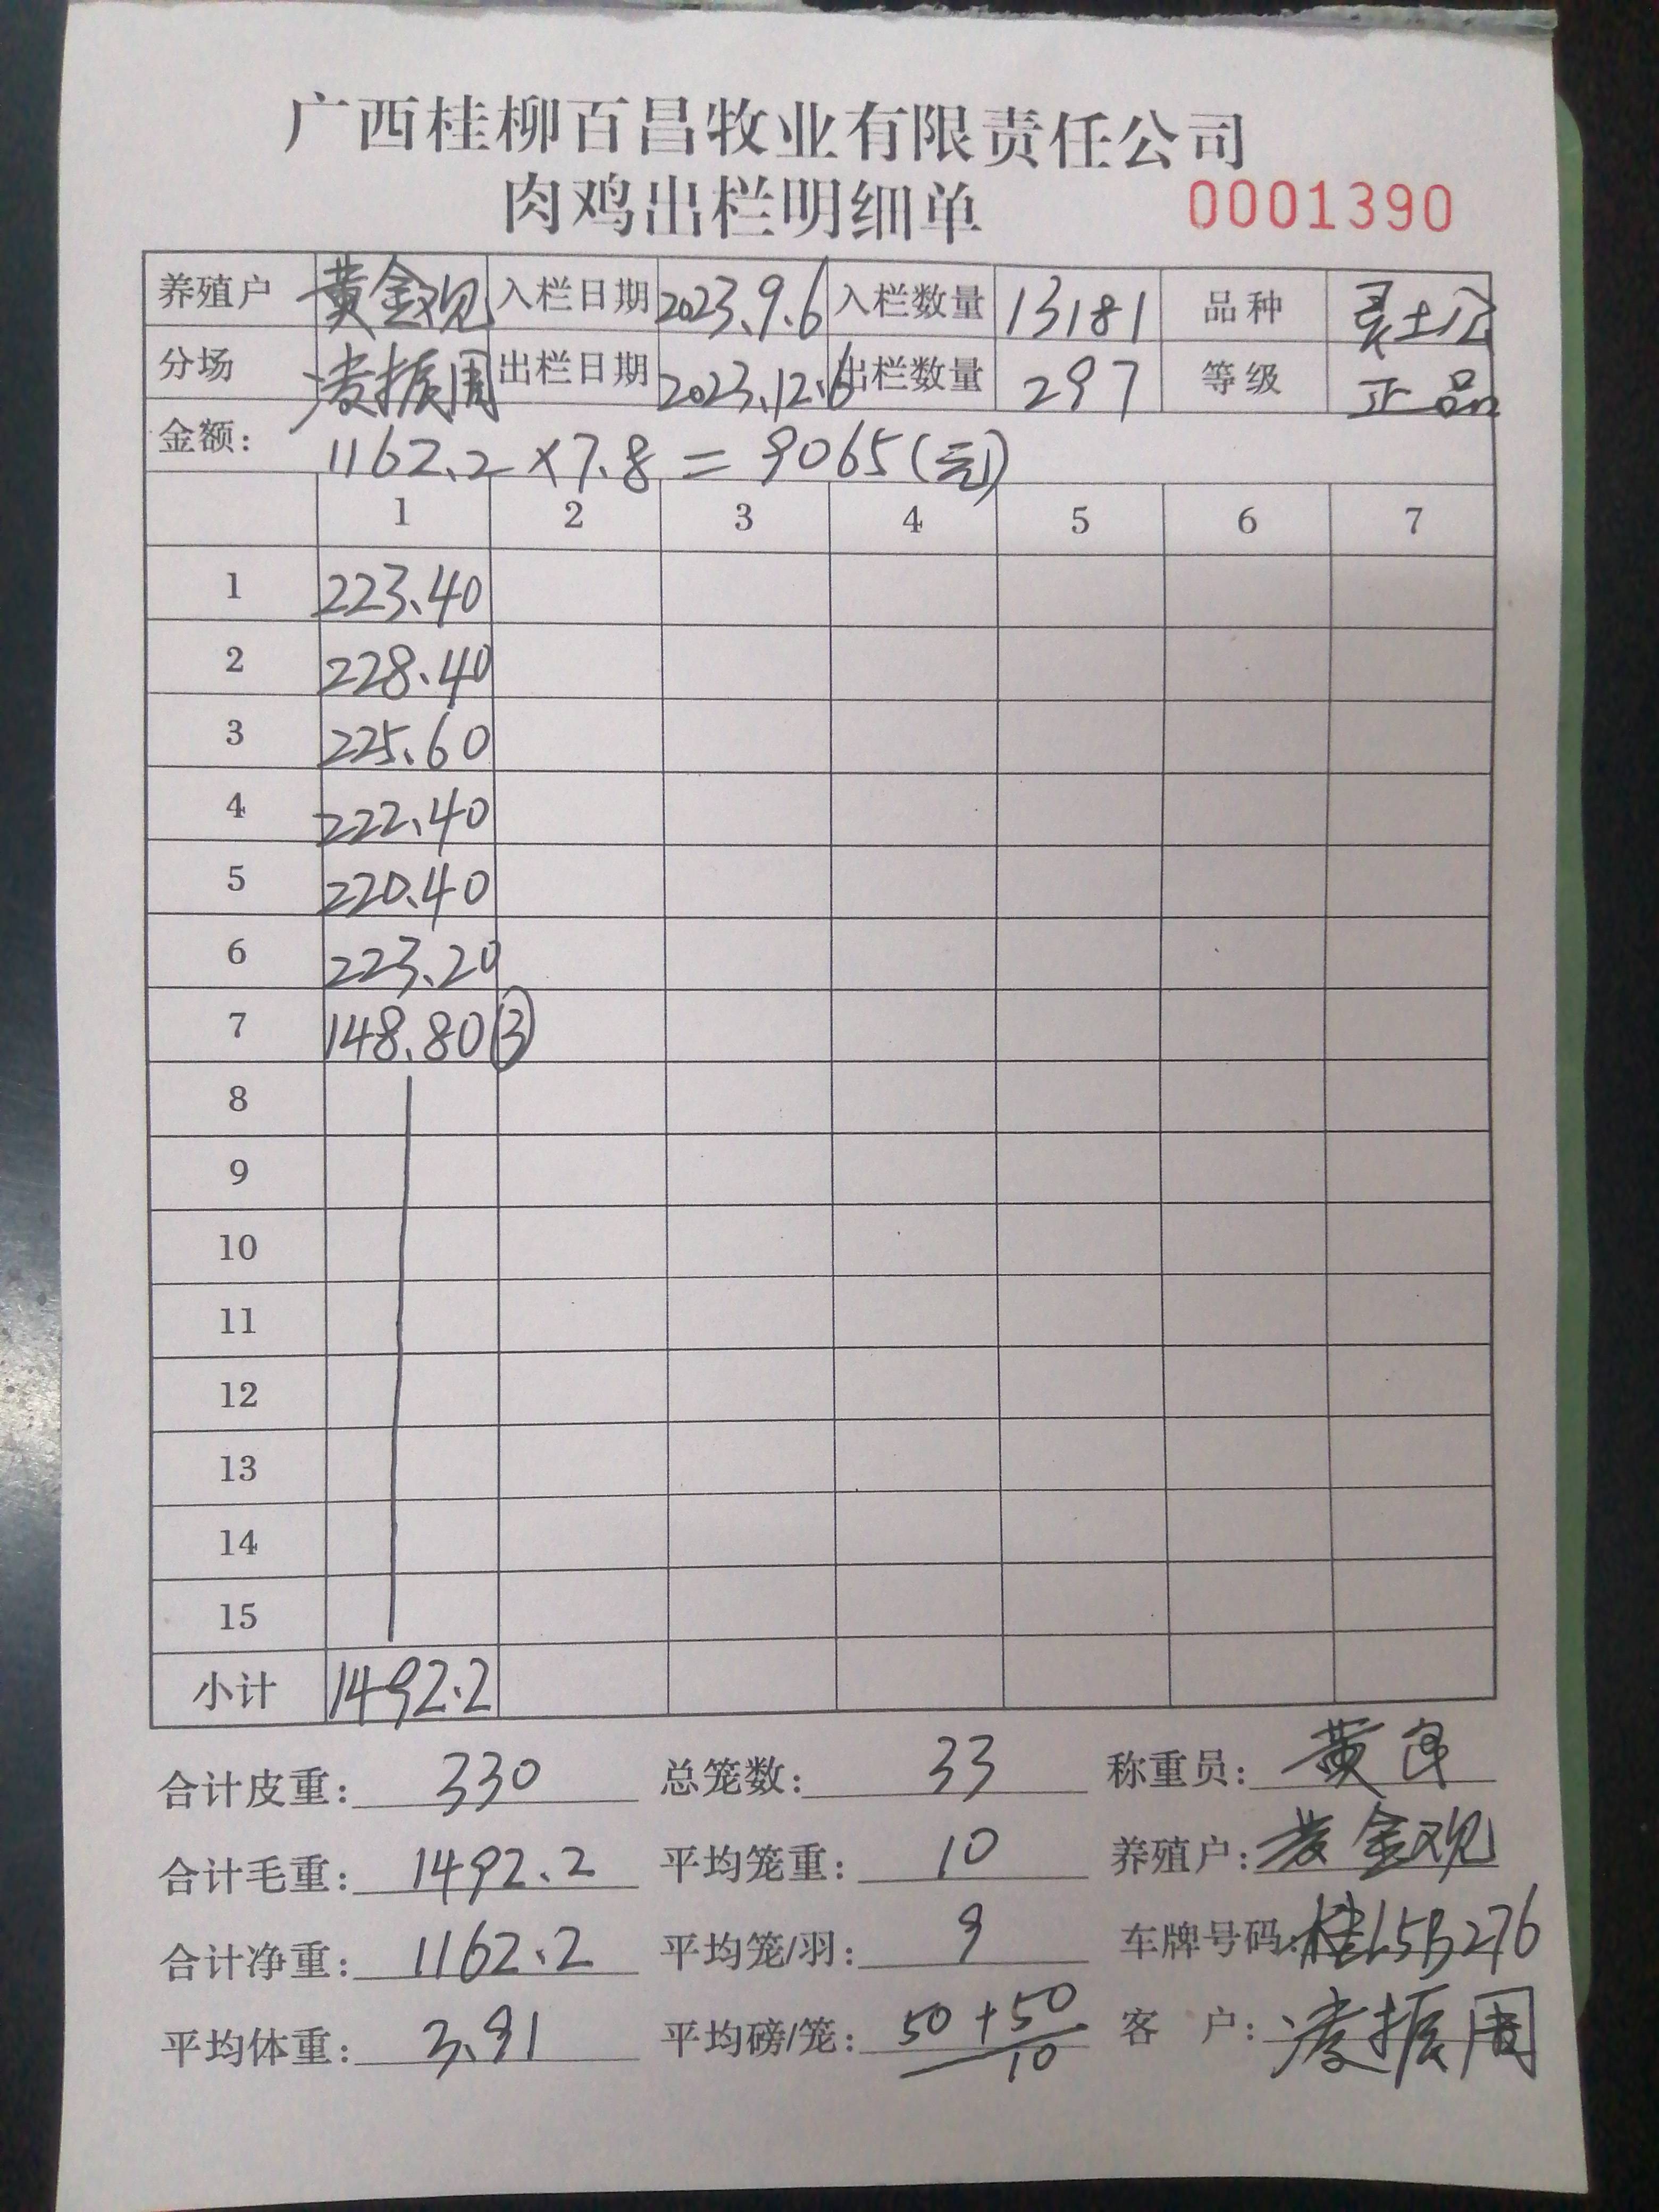 广西桂柳百昌牧业有限责任公司
肉鸡出栏明细单 0001390
养殖户 黄金观 入栏日期 2023.9.6 入栏数量 13181 品种 灵土公
分场 凌振周 出栏日期 2023.12.6 出栏数量 297 等级 正品
金额: 1162.2×7.8=9065(元)
1 2 3 4 5 6 7
1 223.40
2 228.40
3 225.60
4 222.40
5 220.40
6 223.20
7 148.80 ③
8
9
10
11
12
13
14
15
小计 1492.2
合计皮重: 330 总笼数: 33 称重员: 黄
合计毛重: 1492.2 平均笼重: 10 养殖户: 黄金观
合计净重: 1162.2 平均笼/羽: 9 车牌号码: 桂L5B276
平均体重: 3.91 平均磅/笼: 50+50/10 客户: 凌振周